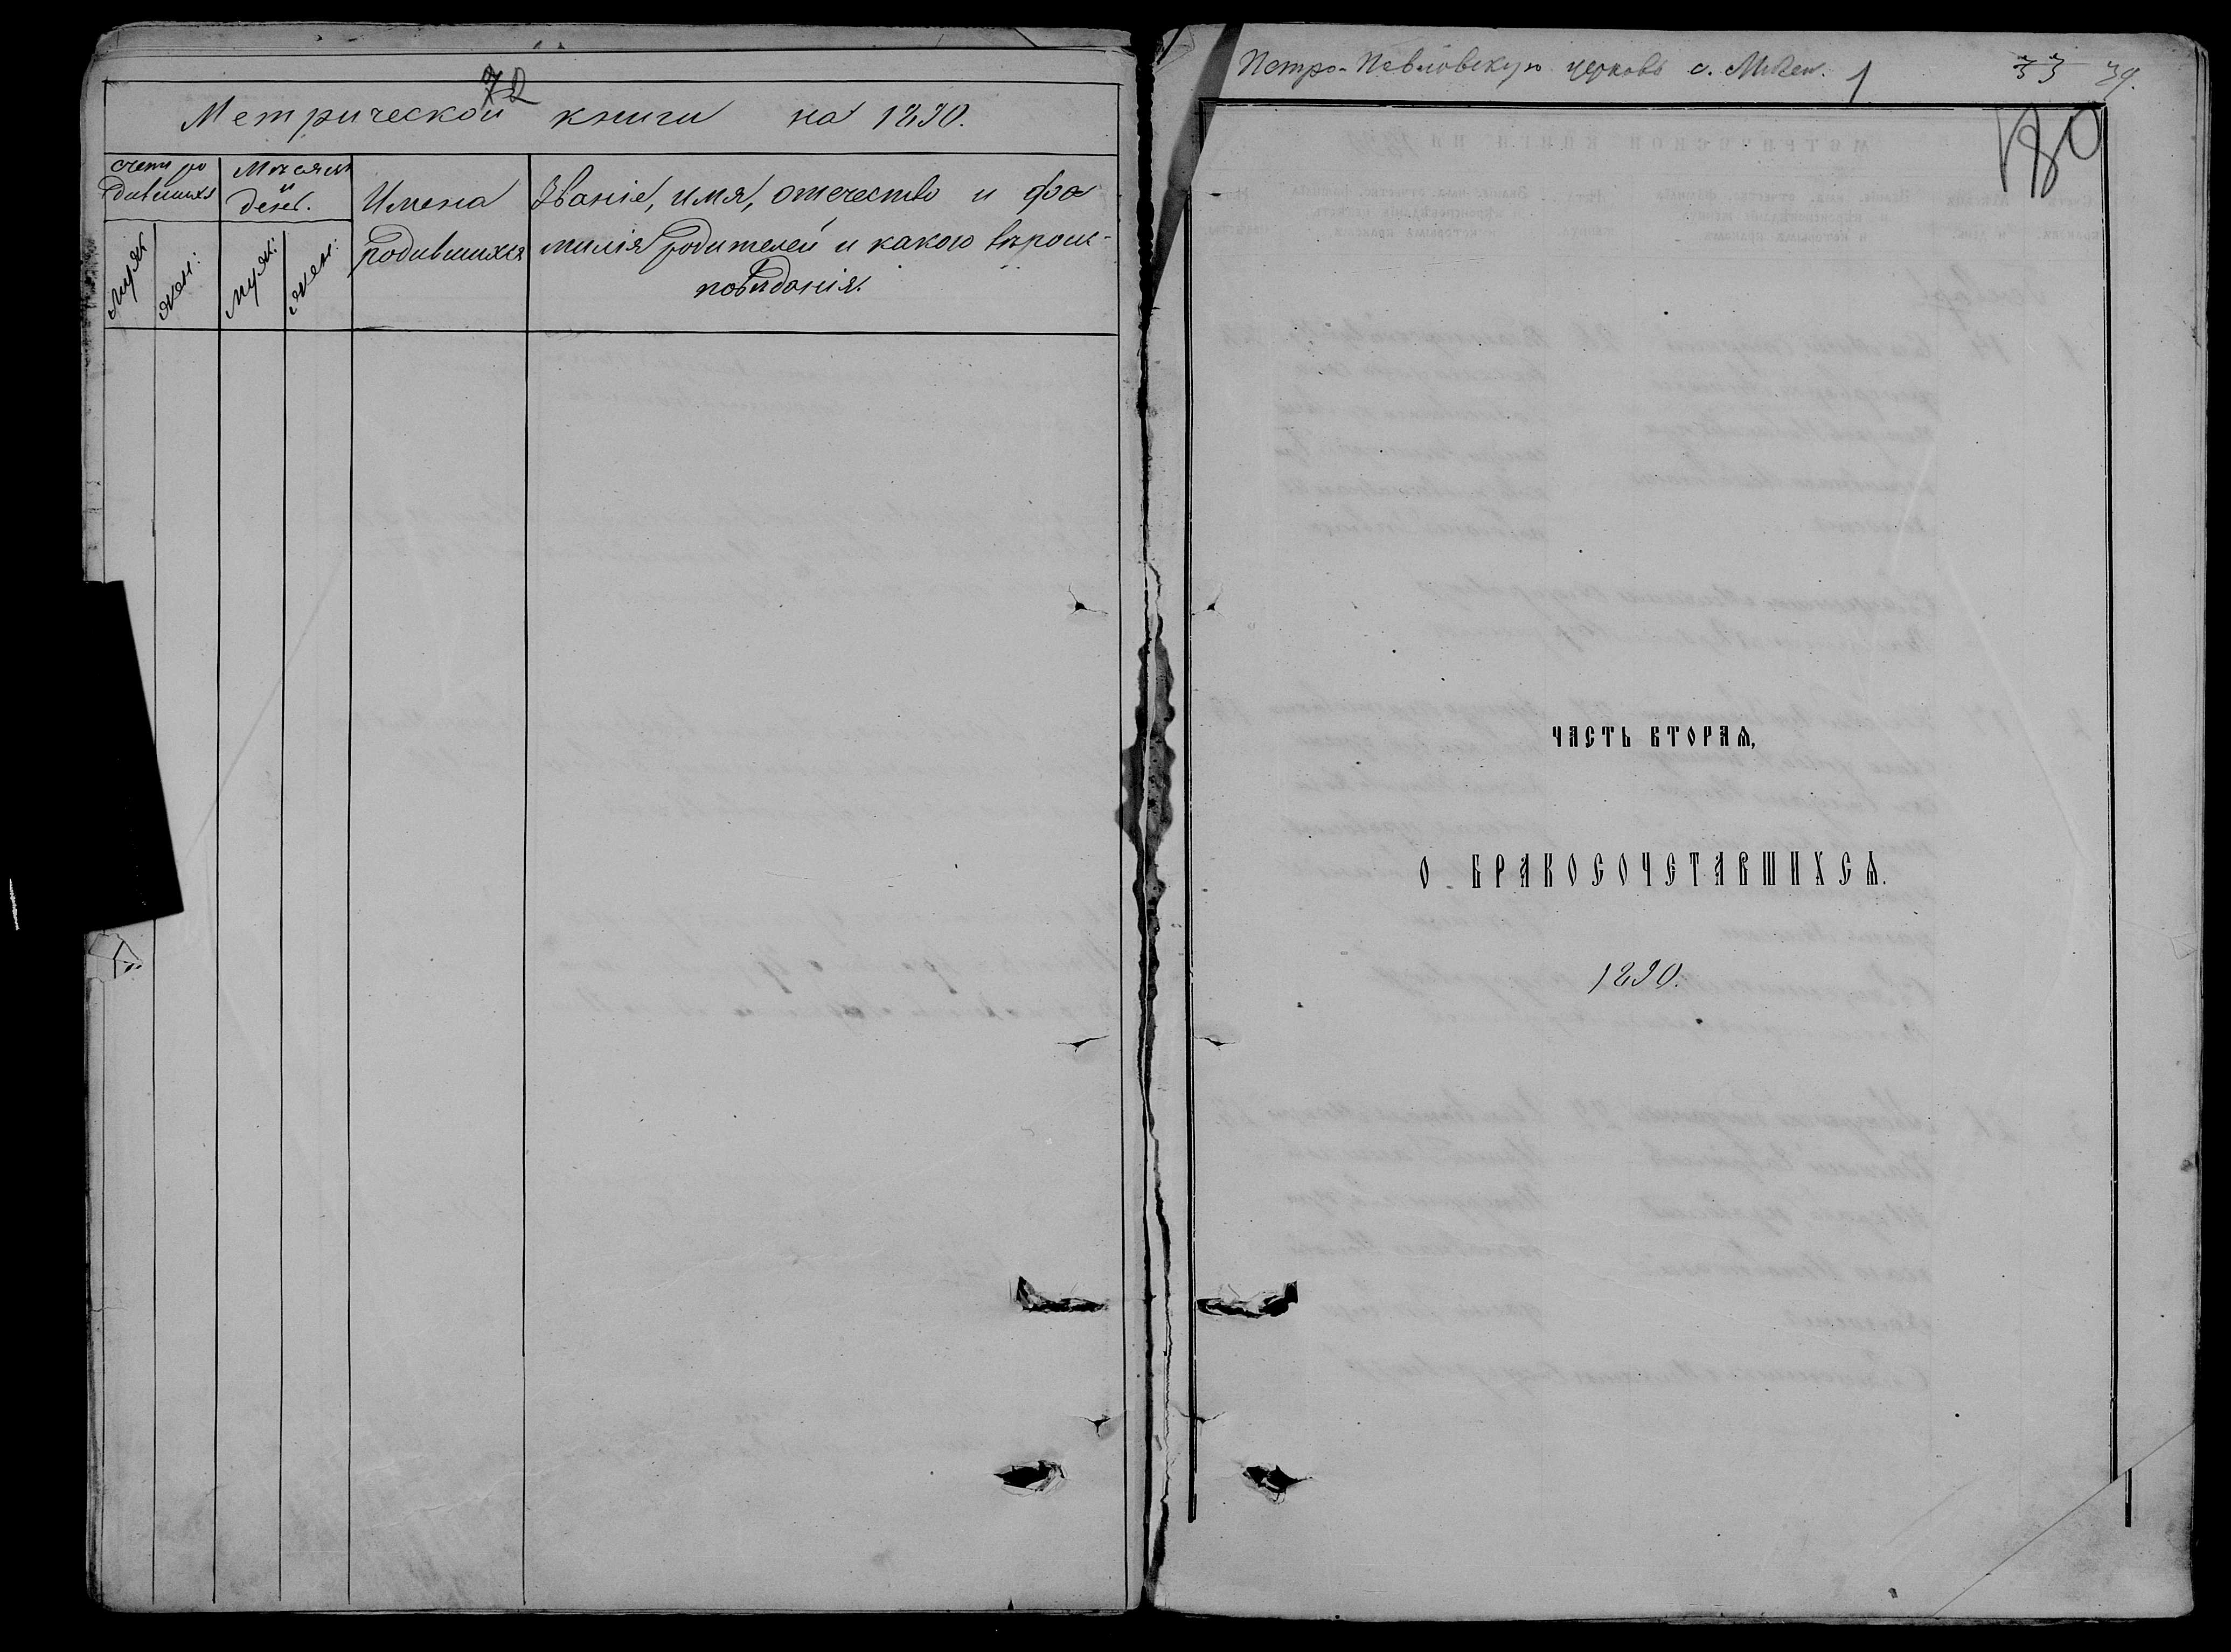 72
Метрической книги на 1890.
Счетъ ро
дившихся
Мѣсяцъ
и
день.
муж:
жен:
муж:
жен:
Имена
родившихся
Званіе, имя, отечество и фа
милія родителей и какого вѣроис-
повѣданія.
Петро-Павловскую церковь с. 1
33 39.
180
ЧАСТЬ ВТОРАѦ,
О БРАКОСОЧЕТАВШИХСѦ.
1890.